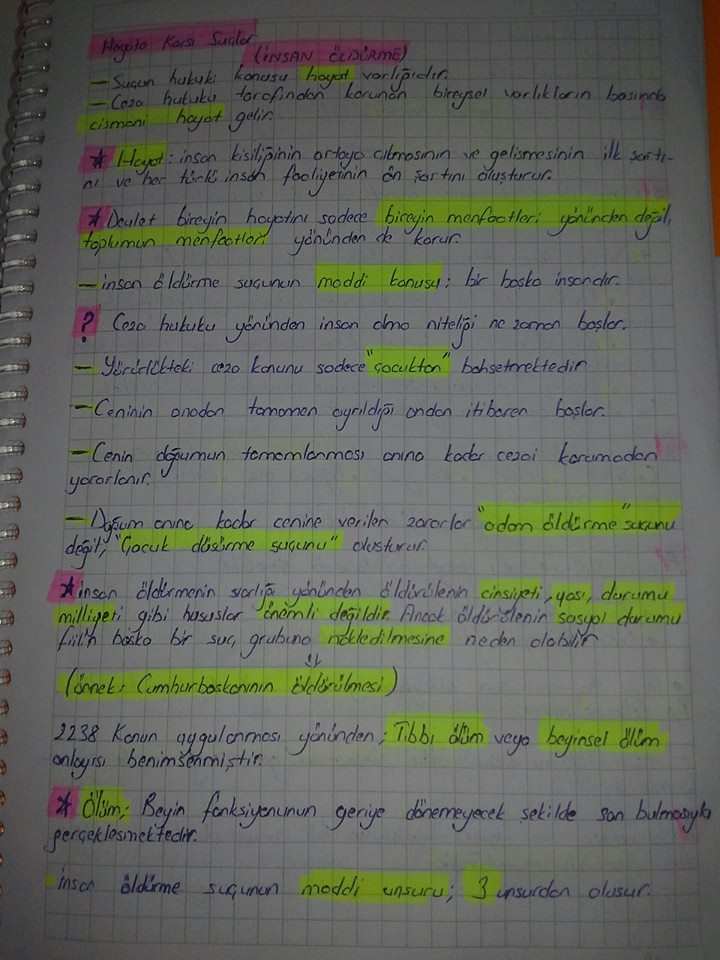 Hayata Karşı Suçlar
(İNSAN ÖLDÜRME)
- Suçun hukuki konusu hayat varlığıdır.
- Ceza hukuku tarafından korunan bireysel varlıkların başında
cismani hayat gelir.
* Hayat: insan kişiliğinin ortaya çıkmasının ve gelişmesinin ilk şartı-
nı ve her türlü insan faaliyetinin ön şartını oluşturur.
* Devlet bireyin hayatını sadece bireyin menfaatleri yönünden değil,
toplumun menfaatları yönünden de korur.
- insan öldürme suçunun maddi konusu; bir başka insandır.
? Ceza hukuku yönünden insan olma niteliği ne zaman başlar.
- Yürürlükteki ceza kanunu sadece "çocuktan" bahsetmektedir
- Ceninin anadan tamamen ayrıldığı andan itibaren başlar.
- Cenin doğumun tamamlanması anına kadar cezai korumadan
yararlanır.
- Doğum anına kadar cenine verilen zararlar "adam öldürme" suçunu
değil, "Çocuk düşürme suçunu" oluşturur.
* insan öldürmenin varlığı yönünden öldürülenin cinsiyeti, yaşı, durumu
milliyeti gibi hususlar önemli değildir. Ancak öldürülenin sosyal durumu
fiilin başka bir suç grubuna nakledilmesine neden olabilir
(örnek: Cumhurbaşkanının öldürülmesi)
2238 Kanun uygulanması yönünden; Tıbbı ölüm veya beyinsel ölüm
anlayışı benimsenmiştir.
* Ölüm; Beyin fonksiyonunun geriye dönemeyecek şekilde son bulmasıyla
gerçekleşmektedir.
insan öldürme suçunun maddi unsuru; 3 unsurdan oluşur.